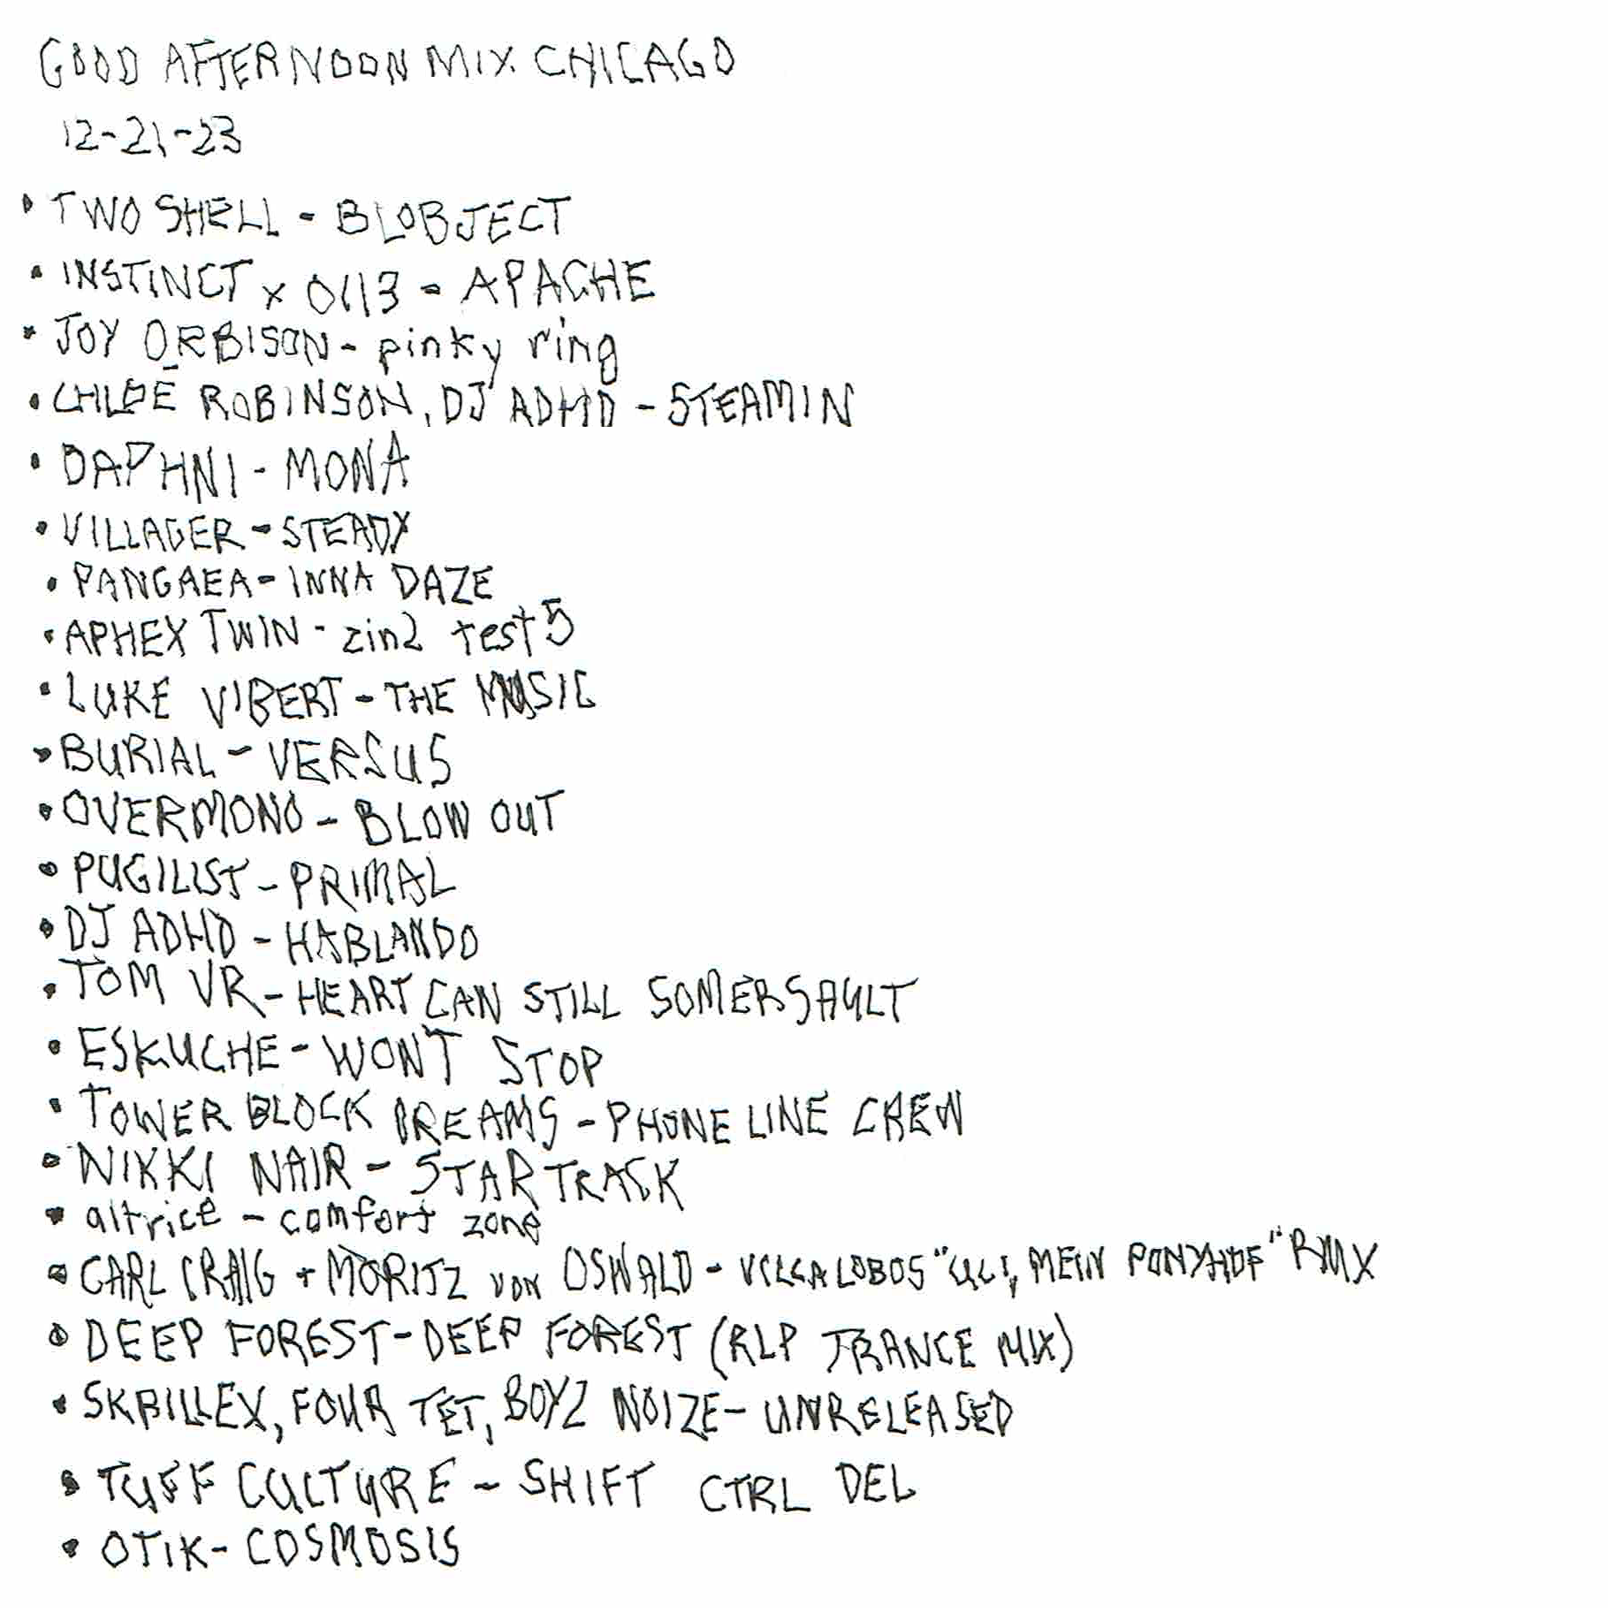 GOOD AFTERNOON MIX CHICAGO
12-21-23
• TWO SHELL - BLOBJECT
• INSTINCT x 0113 - APACHE
• JOY ORBISON - pinky ring
• CHLOÉ ROBINSON, DJ ADHD - STEAMIN
• DAPHNI - MONA
• VILLAGER - STEADY
• PANGAEA - INNA DAZE
• APHEX TWIN - zin2 test5
• LUKE VIBERT - THE MUSIC
• BURIAL - VERSUS
• OVERMONO - BLOW OUT
• PUGILIST - PRIMAL
• DJ ADHD - HABLANDO
• TOM VR - HEART CAN STILL SOMERSAULT
• ESKUCHE - WON'T STOP
• TOWER BLOCK DREAMS - PHONE LINE CREW
• NIKKI NAIR - STAR TRACK
• altrice - comfort zone
• CARL CRAIG + MORITZ von OSWALD - VILLALOBOS "ULI, MEIN PONYHOF" RMX
• DEEP FOREST - DEEP FOREST (RLP TRANCE MIX)
• SKRILLEX, FOUR TET, BOYZ NOIZE - UNRELEASED
• TUFF CULTURE - SHIFT CTRL DEL
• OTIK - COSMOSIS